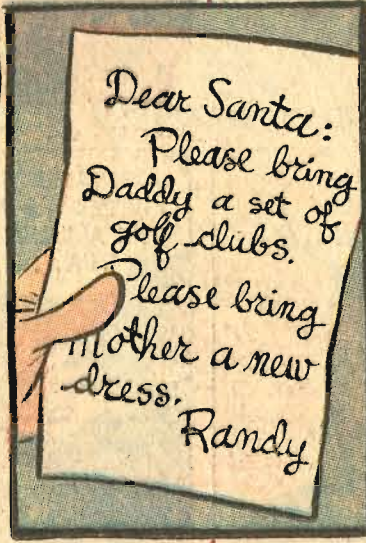 Dear Santa:
Please bring
Daddy a set of
golf clubs.
Please bring
Mother a new
dress.
Randy